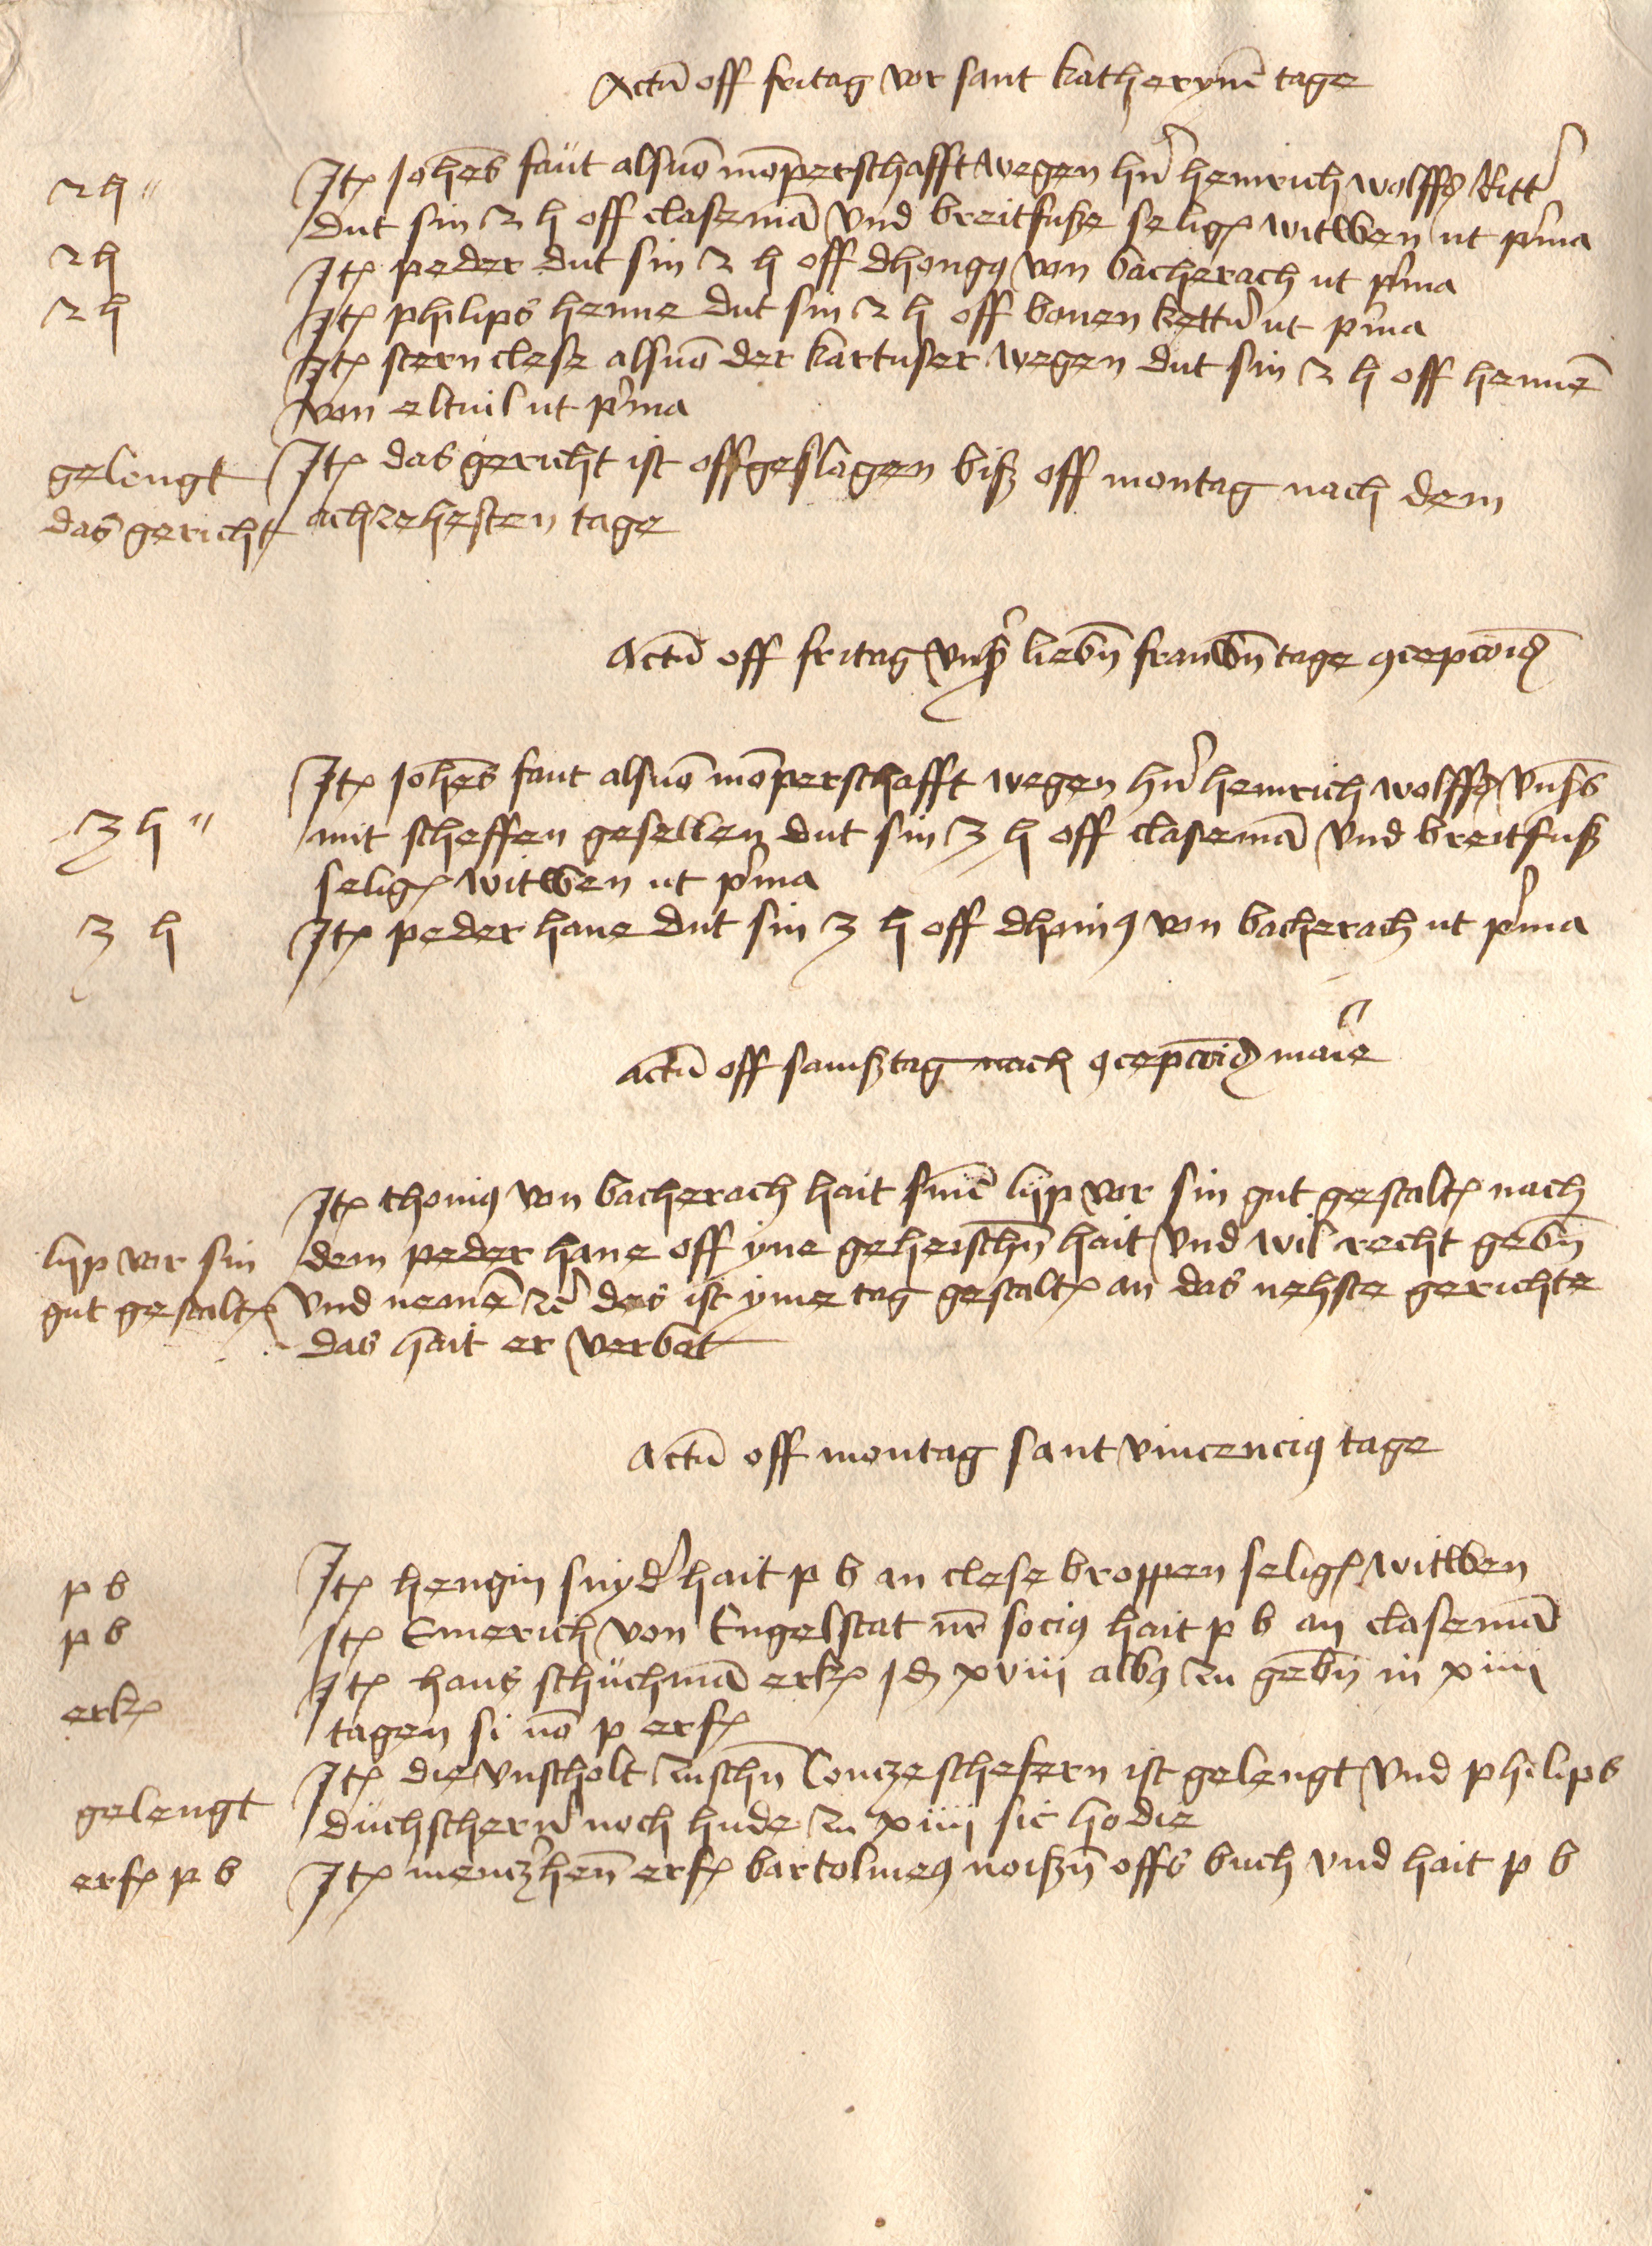 Actū off fritag vor sant katherynē tage
2 h
Itꝫ Johēs faut alsuō mōperschafft wegen hr̄ heinrich wolffs Ritt
dut sin 2 h off clasemā vnd breitfusze seligꝫ witwen ut pma
2 h
Itꝫ peder dut sin 2 h off dhongꝰ von bacherach ut pma
2 h
Itꝫ philips henne dut sin 2 h off bonen kettn̄ ut pma
Itꝫ stern clese alsuō der kartuser wegen dut sin 2 h off hennē
von eltuil ut pma
gelengt
das gericht
Itꝫ das gericht ist offgeslagen bisz off montag nach dem
achzehesten tage
Actū off fritag vnsr liebn̄ frauwn̄ tage ꝯcepcōis
Itꝫ Johēs faut alsuō mōperschafft wegen hr̄ heinrich wolffs vnss
3 h
mit scheffen gesellen dut sin 3 h off clasemā vnd breitfusz
seligꝫ witwen ut pma
3 h
Itꝫ peder hane dut sin 3 h off dhoniꝰ von bacherach ut pma
actū off samsztag nach ꝯcepcōis marie
Itꝫ thoniꝰ von bacherach hait sinē lijp vor sin gut gestaltꝫ nach
lijp vor sin
gut gestaltꝫ
dem peder hane off yne geheischn̄ hait vnd wil recht gebn̄
vnd nemē zc̄ des ist yme tag gestaltꝫ an das nehste gerichte
das hait er verbot
Actū off montag sant vincenciꝰ tage
p b
Itꝫ hengin snyd' hait p b an clese broppen seligꝫ witwen
p b
Itꝫ Emerich von Engelstat nr̄ sociꝰ hait p b an clasemā
erkꝫ
Itꝫ hans schuchmā erkꝫ Jd xviii albꝰ zu gebn̄ in xiiii
tagen si nō p erfꝫ
gelengt
Itꝫ die vnscholt zuschn̄ Contzeschefern ist gelengt vnd philips
duchscherer noch hude zu xiiii sic hodie
erfꝫ p b
Itꝫ mentz'hen̄ erfꝫ bartolmeꝰ noiszn̄ offs buch vnd hait p b